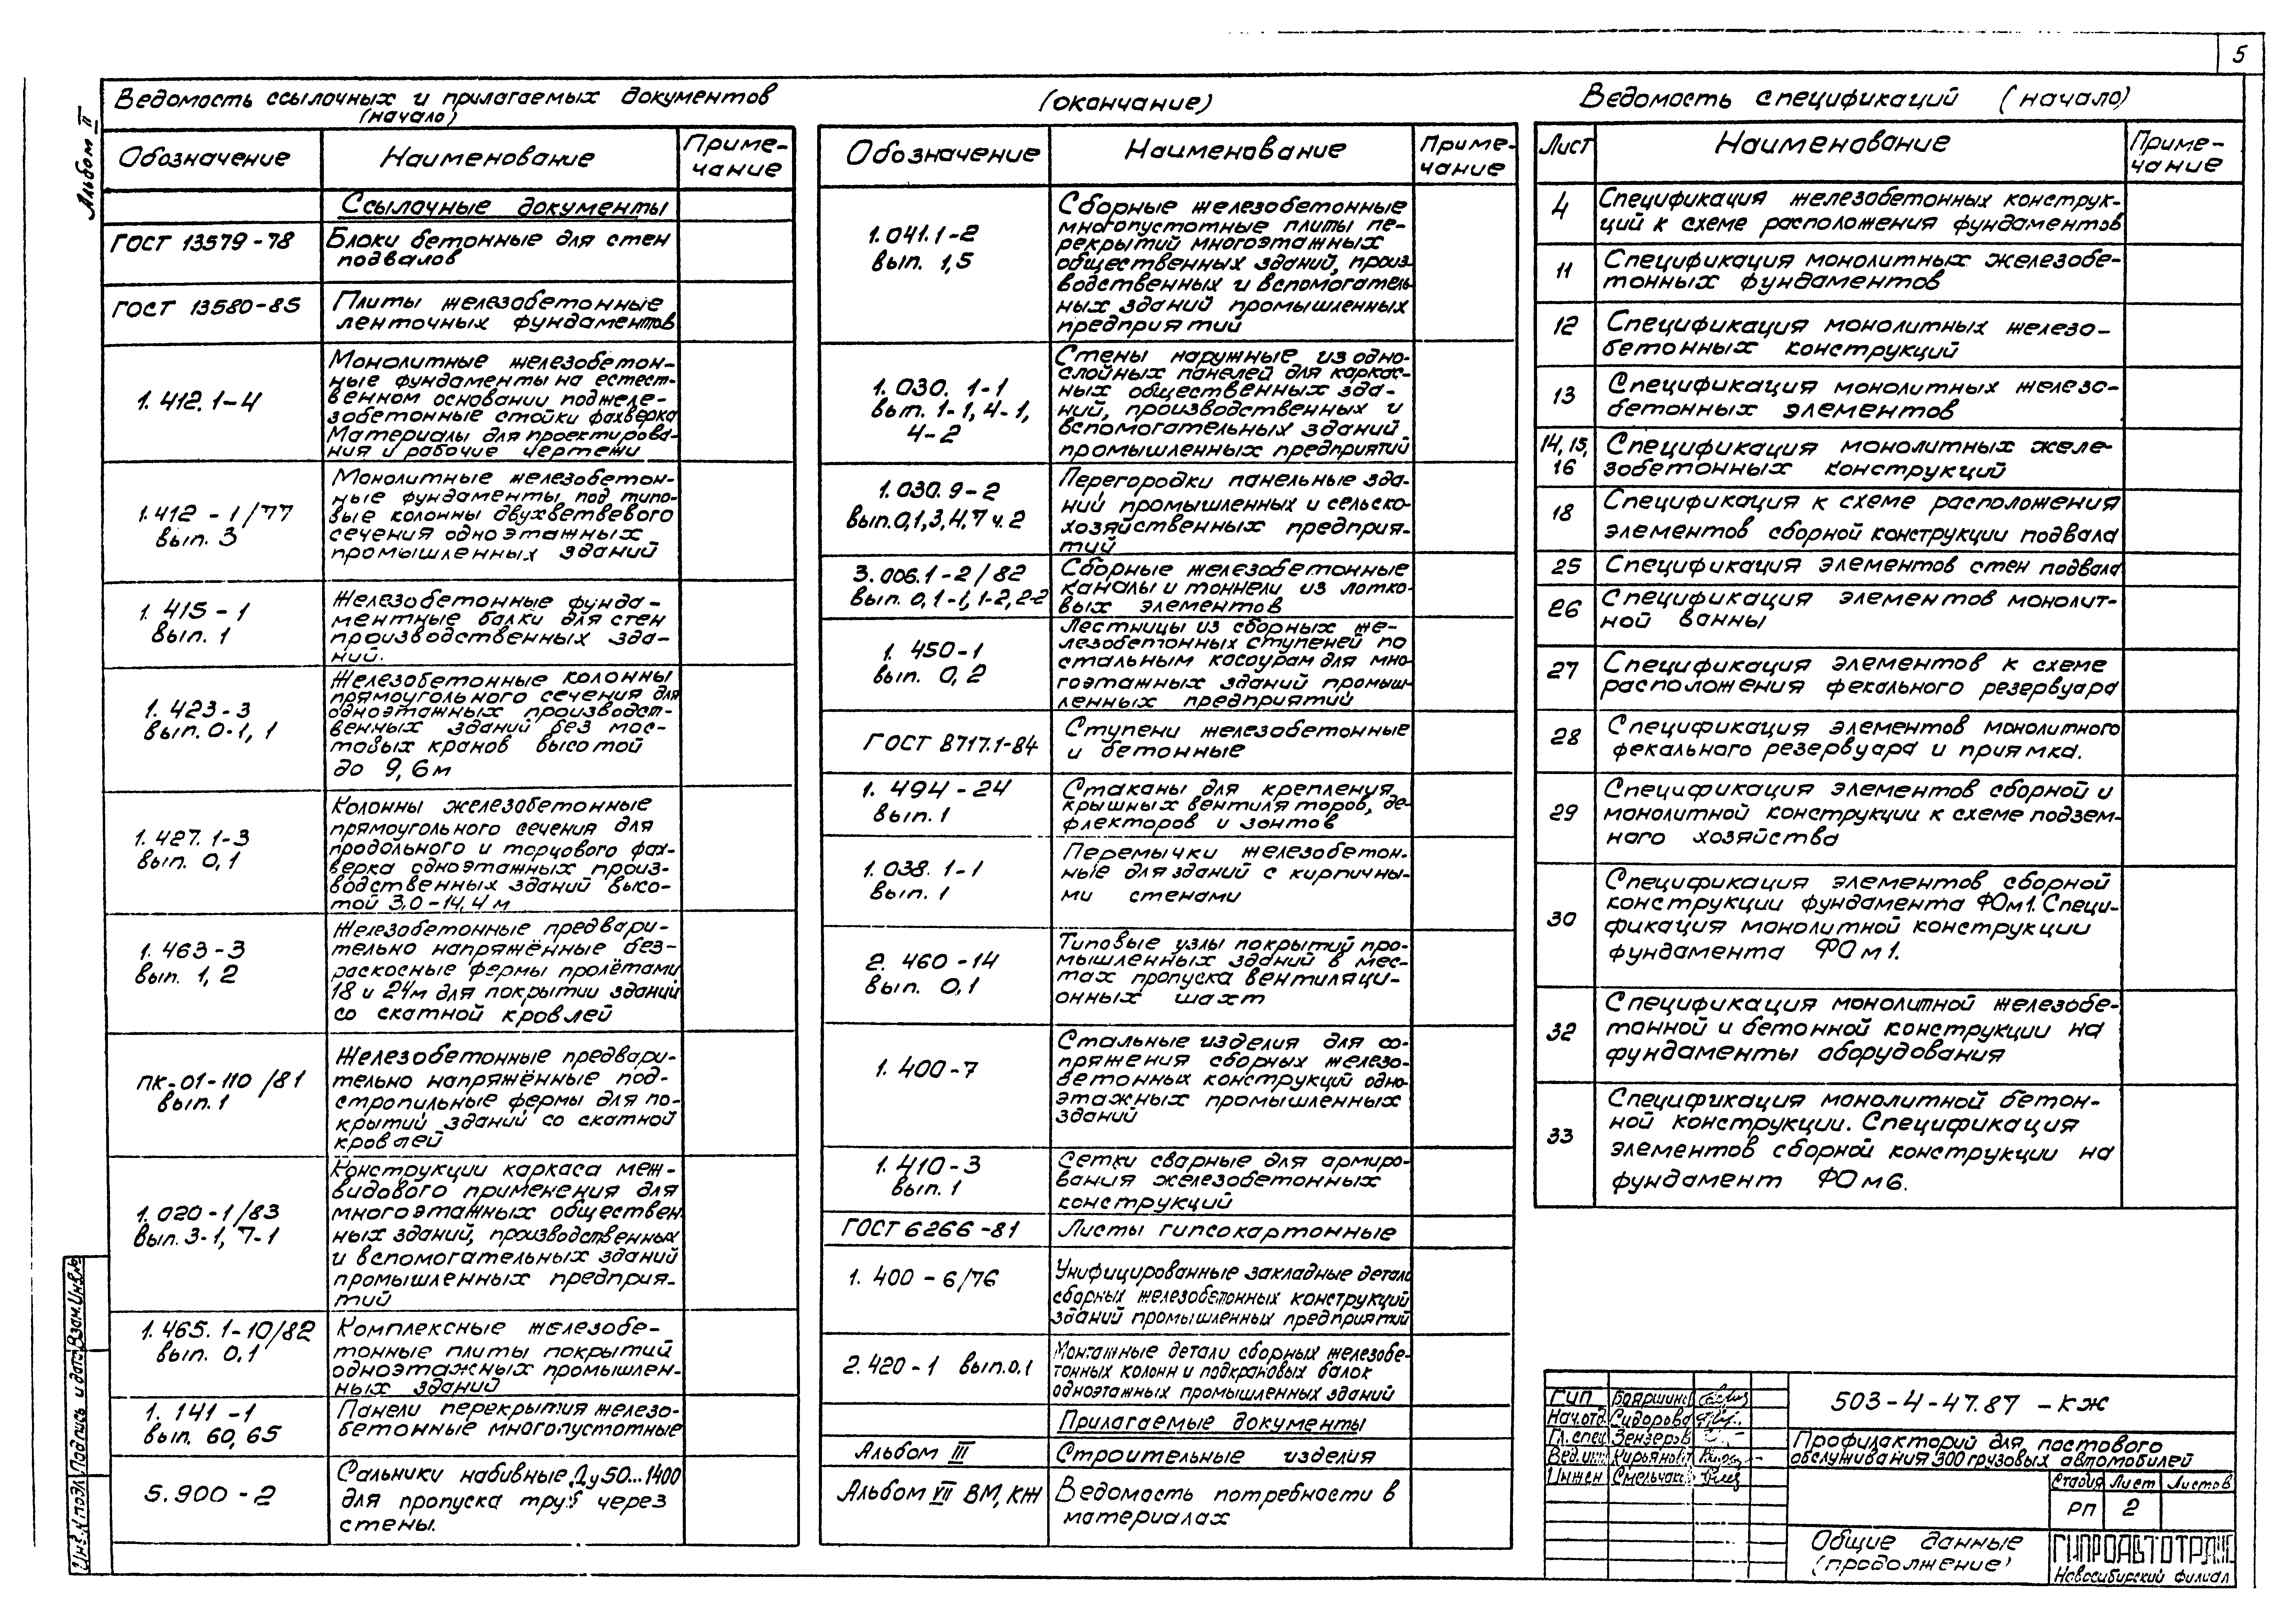 5
Альбом II
Ведомость ссылочных и прилагаемых документов
(начало)
Обозначение
Наименование
Приме-
чание
Ссылочные документы
ГОСТ 13579-78
Блоки бетонные для стен
подвалов
ГОСТ 13580-85
Плиты железобетонные
ленточных фундаментов
1.412.1-4
Монолитные железобетон-
ные фундаменты на естест-
венном основании под желе-
зобетонные стойки фахверка
Материалы для проектирова-
ния и рабочие чертежи
1.412-1/77
вып. 3
Монолитные железобетон-
ные фундаменты под типо-
вые колонны двухветвевого
сечения одноэтажных
промышленных зданий
1.415-1
вып. 1
Железобетонные фунда-
ментные балки для стен
производственных зда-
ний.
1.423-3
вып. 0-1, 1
Железобетонные колонны
прямоугольного сечения для
одноэтажных производст-
венных зданий без мос-
товых кранов высотой
до 9,6м
1.427.1-3
вып. 0,1
Колонны железобетонные
прямоугольного сечения для
продольного и торцового фах-
верка одноэтажных произ-
водственных зданий высо-
той 3,0-14,4 м
1.463-3
вып. 1, 2
Железобетонные предвари-
тельно напряжённые без-
раскосные фермы пролётами
18 и 24м для покрытии зданий
со скатной кровлей
ПК-01-110/81
вып. 1
Железобетонные предвари-
тельно напряжённые под-
стропильные фермы для по-
крытий зданий со скатной
кровлей
1.020-1/83
вып. 3-1, 7-1
Конструкции каркаса меж-
видового применения для
многоэтажных обществен
ных зданий, производственных
и вспомогательных зданий
промышленных предприя-
тий
1.465.1-10/82
вып. 0,1
Комплексные железобе-
тонные плиты покрытий
одноэтажных промышлен-
ных зданий
1.141-1
вып. 60, 65
Панели перекрытия железо-
бетонные многопустотные
5.900-2
Сальники набивные Ду50...1400
для пропуска труб через
стены.
(окончание)
Обозначение
Наименование
Приме-
чание
1.041.1-2
вып. 1,5
Сборные железобетонные
многопустотные плиты пе-
рекрытий многоэтажных
общественных зданий, произ-
водственных и вспомогатель-
ных зданий промышленных
предприятий
1.030.1-1
вып. 1-1, 4-1,
4-2
Стены наружные из одно-
слойных панелей для каркас-
ных общественных зда-
ний, производственных и
вспомогательных зданий
промышленных предприятий
1.030.9-2
вып.0,1,3,4,7 ч.2
Перегородки панельные зда-
ний промышленных и сельско-
хозяйственных предприя-
тий
3.006.1-2/82
вып. 0, 1-1, 1-2, 2-2
Сборные железобетонные
каналы и тоннели из лотко-
вых элементов
1.450-1
вып. 0,2
Лестницы из сборных же-
лезобетонных ступеней по
стальным косоурам для мно-
гоэтажных зданий промыш-
ленных предприятий
ГОСТ 8717.1-84
Ступени железобетонные
и бетонные
1.494-24
вып. 1
Стаканы для крепления
крышных вентиляторов, де-
флекторов и зонтов
1.038.1-1
вып. 1
Перемычки железобетон-
ные для зданий с кирпичны-
ми стенами
2.460-14
вып. 0,1
Типовые узлы покрытий про-
мышленных зданий в мес-
тах пропуска вентиляци-
онных шахт
1.400-7
Стальные изделия для со-
пряжения сборных железо-
бетонных конструкций одно-
этажных промышленных
зданий
1.410-3
вып. 1
Сетки сварные для армиро-
вания железобетонных
конструкций
ГОСТ 6266-81
Листы гипсокартонные
1.400-6/76
Унифицированные закладные детали
сборных железобетонных конструкций
зданий промышленных предприятий
2.420-1 вып.0.1
Монтажные детали сборных железобе-
тонных колонн и подкрановых балок
одноэтажных промышленных зданий
Прилагаемые документы
Альбом III
Строительные изделия
Альбом VII ВМ, КЖ
Ведомость потребности в
материалах
Ведомость спецификаций (начало)
Лист
Наименование
Приме-
чание
4
Спецификация железобетонных конструк-
ций к схеме расположения фундаментов
11
Спецификация монолитных железобе-
тонных фундаментов
12
Спецификация монолитных железо-
бетонных конструкций
13
Спецификация монолитных железо-
бетонных элементов
14, 15,
16
Спецификация монолитных желе-
зобетонных конструкций
18
Спецификация к схеме расположения
элементов сборной конструкции подвала
25
Спецификация элементов стен подвала
26
Спецификация элементов монолит-
ной ванны
27
Спецификация элементов к схеме
расположения фекального резервуара
28
Спецификация элементов монолитного
фекального резервуара и приямка.
29
Спецификация элементов сборной и
монолитной конструкции к схеме подзем-
ного хозяйства
30
Спецификация элементов сборной
конструкции фундамента ФОм1. Специ-
фикация монолитной конструкции
фундамента ФОм1.
32
Спецификация монолитной железобе-
тонной и бетонной конструкции на
фундаменты оборудования
33
Спецификация монолитной бетон-
ной конструкции. Спецификация
элементов сборной конструкции на
фундамент ФОм6.
ГИП Бояршинов
Нач.отд. Сидорова
Гл.спец Зензеров
Вед.инж
Инжен
503-4-47.87 -КЖ
Профилакторий для постового
обслуживания 300 грузовых автомобилей
Стадия Лист Листов
РП 2
Общие данные
(продолжение)
ГИПРОАВТОТРАНС
Новосибирский филиал
Инв.№ подл. Подпись и дата Взам.Инв.№